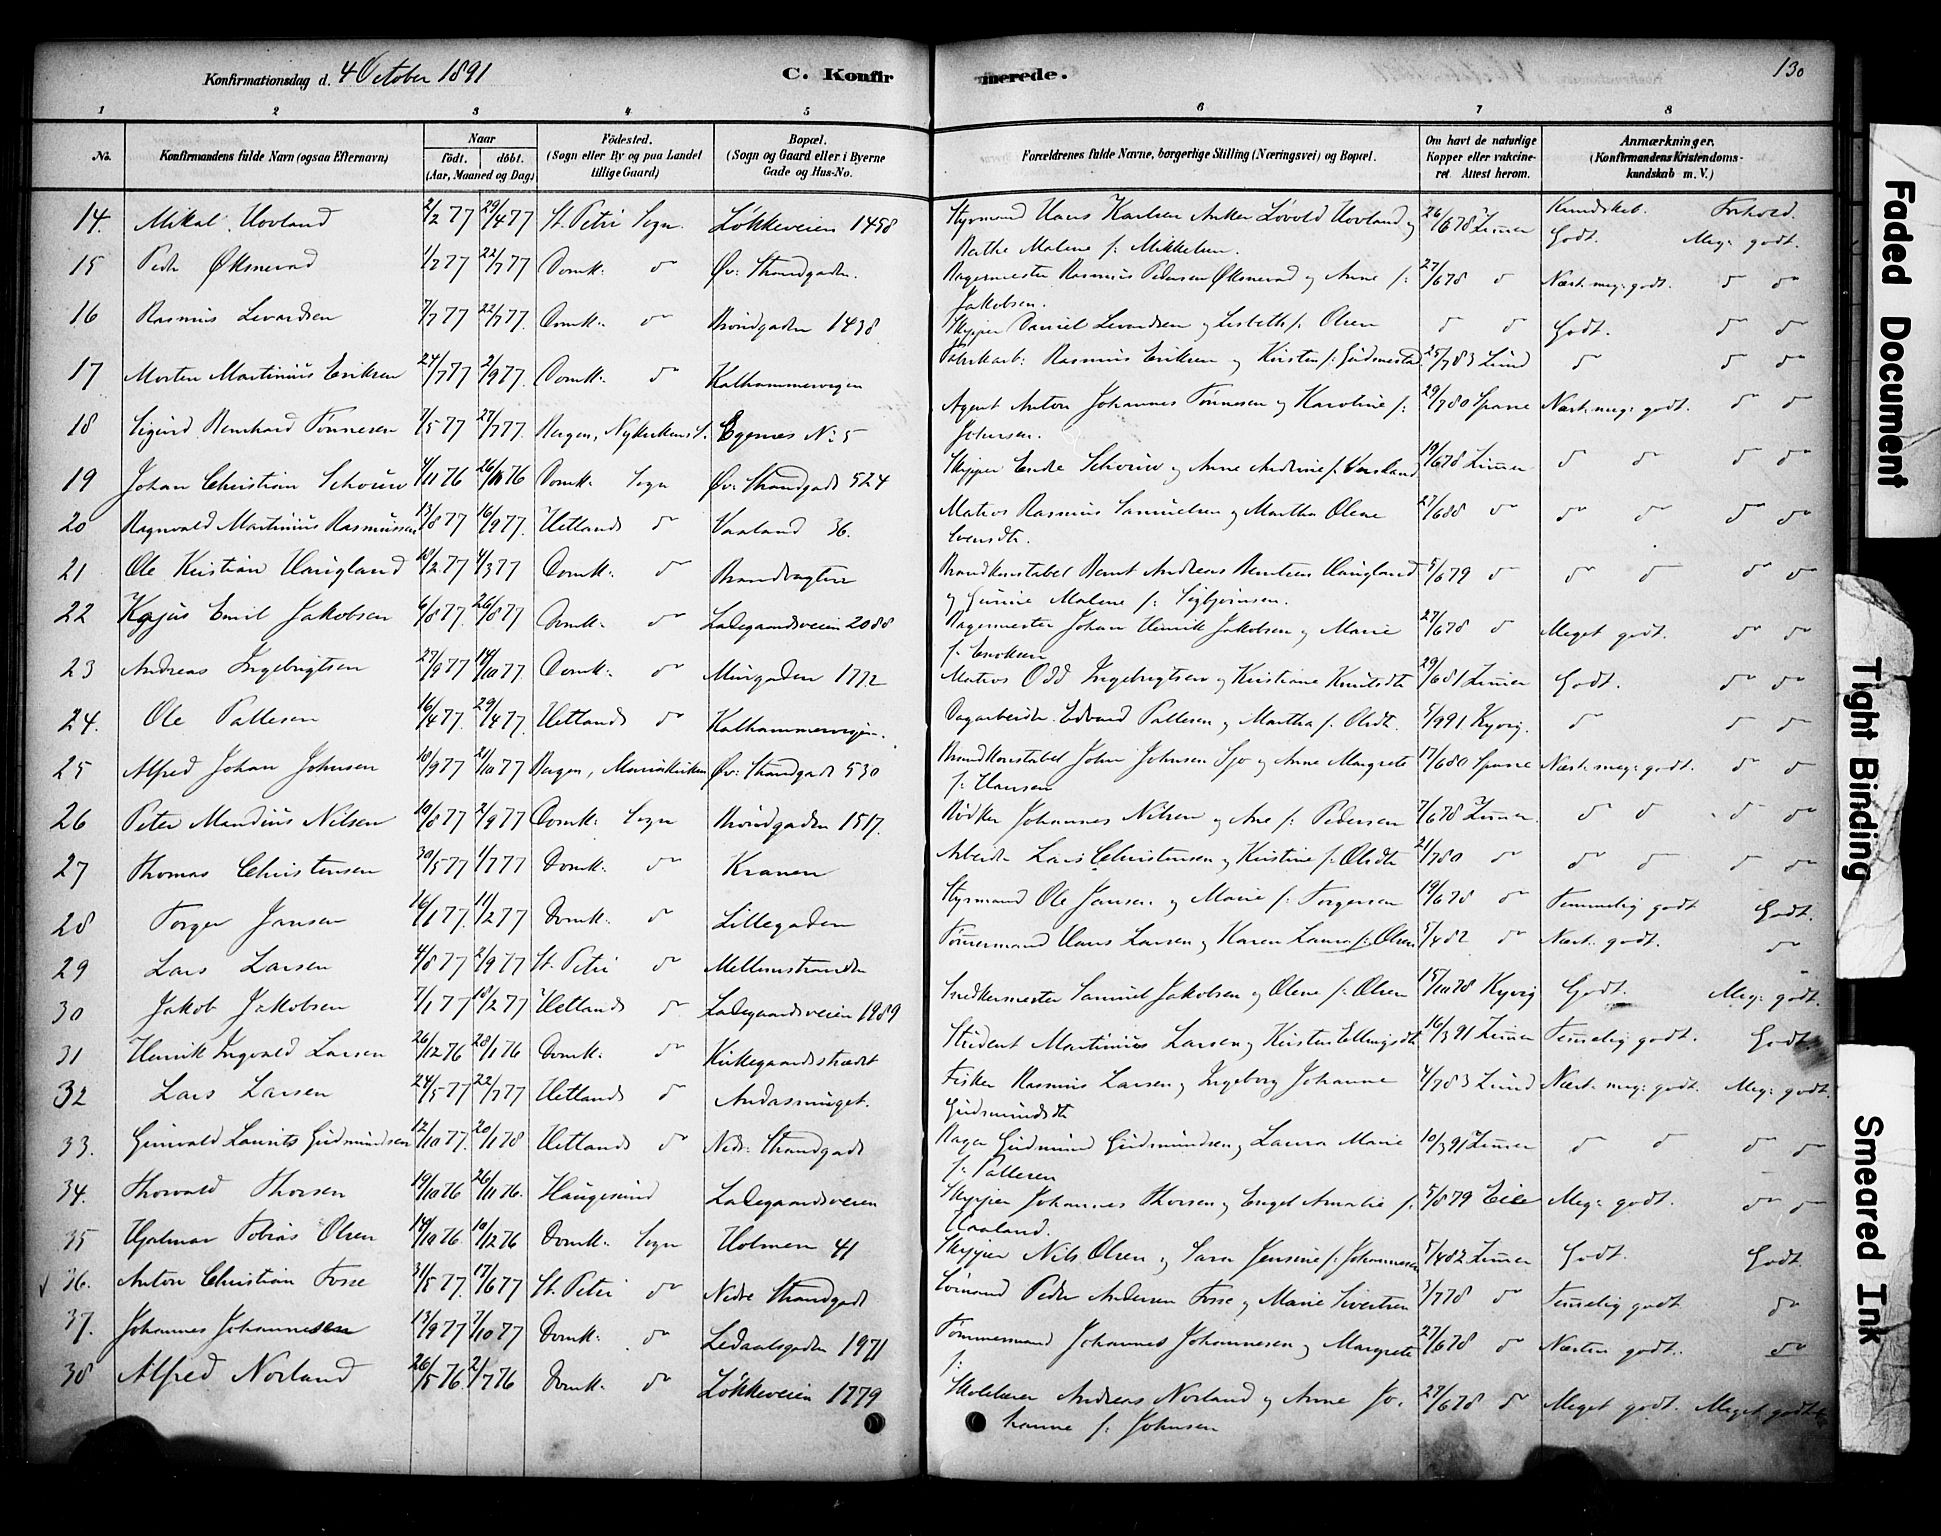 Konfirmationsdag d. 4 October 1891
C. Konfirmerede.
130
1 2 3 4 5 6 7 8
No. Konfirmandens fulde Navn (ogsaa Efternavn) Naar født. døbt. (Aar, Maaned og Dag) Fødested. (Sogn eller By og paa Landet tillige Gaard) Bopæl. (Sogn og Gaard eller i Byerne Gade og Hus-No. Forældrenes fulde Navne, borgerlige Stilling (Næringsvei) og Bopæl. Om havt de naturlige Kopper eller vakcineret. Attest herom. Anmærkninger. (Konfirmandens Kristendomskundskab m. V.)
Kundskab. Forhold.
14. Mikal Hovland 2/2 77 29/4 77 St. Petri Sogn. Løkkeveien 1458 Styrmand Hans Karlsen Anker Løvold Hovland og Berthe Malene f. Mikkelsen. 26/6 78 Zimmer Godt. Meg: godt.
15 Peder Øksnevad 1/7 77 22/7 77 Domk: do Øv: Strandgaden. Bagermester Rasmus Pedersen Øksnevad og Anne f: Jakobsen. 27/6 78 do Næst. meg: godt. do do
16 Rasmus Levardsen 7/7 77 22/7 77 Domk: do 1438 Skipper Daniel Levardsen og Lisbeth f. Olsen do do Godt. do do
17 Morten Martinius Eriksen 24/7 77 2/9 77 Domk: do Kalhammervigen Fabrikarb: Rasmus Eriksen og Kirsten f: Gudmestad 25/7 83 Lund do do do
18 Sigurd Bernhard Tønnesen 7/5 77 27/7 77 Bergen, Nykirkens S. Egenes No 5 Agent Anton Johannes Tønnesen og Karoline f: Johnsen. 29/7 80 Sparre Næst. meg: godt. do do
19 Johan Christian Schouw 4/11 76 26/11 76 Domk: Sogn Øv: Strandgade 524 Skipper Endre Schouw og Anne Andrine f. 19/6 78 Zimmer do do do do
20 Ragnvald Martinius Rasmussen 13/8 77 16/9 77 Hetlands do Vaaland 36. Matros Rasmus Samuelsen og Martha Olene Svendsdt. 27/6 88 do do do do do
21 Ole Kristian Haugland 10/2 77 4/3 77 Domk: do Brandvagten Brandkonstabel Bernt Andreas Berntsen Haugland og Gurine Malene f: Sigbjørnsen. 5/6 79 do do do do do
22 Kajus Emil Jakobsen 6/8 77 26/8 77 Domk: do Ladegaardsveien 2088 Bagermester Johan Henrik Jakobsen og Marie f. Eriksen 27/6 78 do Meget godt. do do
23 Andreas Ingebrigtsen 27/9 77 14/10 77 Domk: do Murgaden 1772 Matros Odd Ingebrigtsen og Kristiane Knutsdt 29/6 81 Zimmer Godt. do do
24. Ole Pallesen 16/4 77 29/4 77 Hetlands do Kalhammervigen. Dagarbeider Edvard Pallesen og Martha f. Olsdt. 5/9 91 Kyvig. do do do
25 Alfred Johan Johnsen 10/9 77 21/10 77 Bergen, Mariakirken Øv: Strandgade 530 Brandkonstabel John Johnsen Sjo og Anne Margrete f: Hansen 17/6 80 Sparre Næst. meg: godt. do do
26 Peter Mandius Nilsen 10/8 77 2/9 77 Domk: Sogn 1517. Bødker Johannes Nilsen og Ane f: Pedersen 7/6 78 Zimmer do do do do
27 Thomas Christensen 30/5 77 1/7 77 Domk: do Kranen Arbeider Lars Christensen og Kristine f: Olsdt 21/7 80 do do do do do
28 Torger Jansen 16/1 77. 11/2 77 Domk: do Lillegaden Styrmand Ole Jansen og Marie f: Torgersen 19/6 78 do Temmelig godt Godt.
29 Lars Larsen 4/8 77 2/9 77 St. Petri do Mellemstraeden Tømmermand Hans Larsen og Karen Laura f: Olsen 5/4 82 do Næst. godt. do
30 Jakob Jakobsen 7/1 77 18/2 77 Hetlands do Ladegaardsveien 1989 Snedkermester Samuel Jakobsen og Olene f: Olsen 15/10 78 Kyvig Godt. Meg: godt.
31 Henrik Ingvald Larsen 26/12 76 28/1 76 Domk: do Kirkegaardsstrædet Student Martinius Larsen og Kirsten Ellingsdt 16/3 91 Zimmer Temmelig godt. Godt.
32 Lars Larsen 24/5 77 22/7 77 Hetlands do Andasmuget. Fisker Rasmus Larsen og Ingeborg Johanne Gudmundsdt 4/7 83 Lund Næst. meg: godt. Meg: godt.
33. Gunvald Laurits Gudmundsen 12/10 77. 20/1 78 Hetlands do Nedr: Strandgade Bager Gudmund Gudmundsen og Laura Marie f: Pallesen 10/3 91 Zimmer do do do do
34. Thorvald Thorsen 19/10 76 26/11 76. Haugesund Ladegaardsveien Skipper Johannes Thorsen og Engel Amalie f. Haaland. 5/8 79 Eide Meg: godt. do do
35 Hjalmar Tobias Olsen 14/10 76 10/12 76 Domk: Sogn Holmen 41 Skipper Nils Olsen og Sara Jensine f: Johannessen 5/4 82 Zimmer Godt. Godt.
36. Anton Christian Fosse 31/5 77. 17/6 77 St. Petri do Nedre Strandgade Peder Andersen Fosse og Marie Sivertsen 3/7 78 do Temmelig godt do
37. Johannes Johannesen 13/9 77 7/10 77 Domk: do Ledaalsgaden 1971 Tømmermand Johannes Johannesen og Margrete f: 27/6 78 do Næsten godt. do
38 Alfred Norland 26/5 76. 2/7 76 Domk: do Løkkeveien 1779 Skolelærer Andreas Norland og Anne Johanne f: Johnsen 27/6 78 do Meget godt. Meget godt.
Faded Document
Tight Binding
Smeared Ink